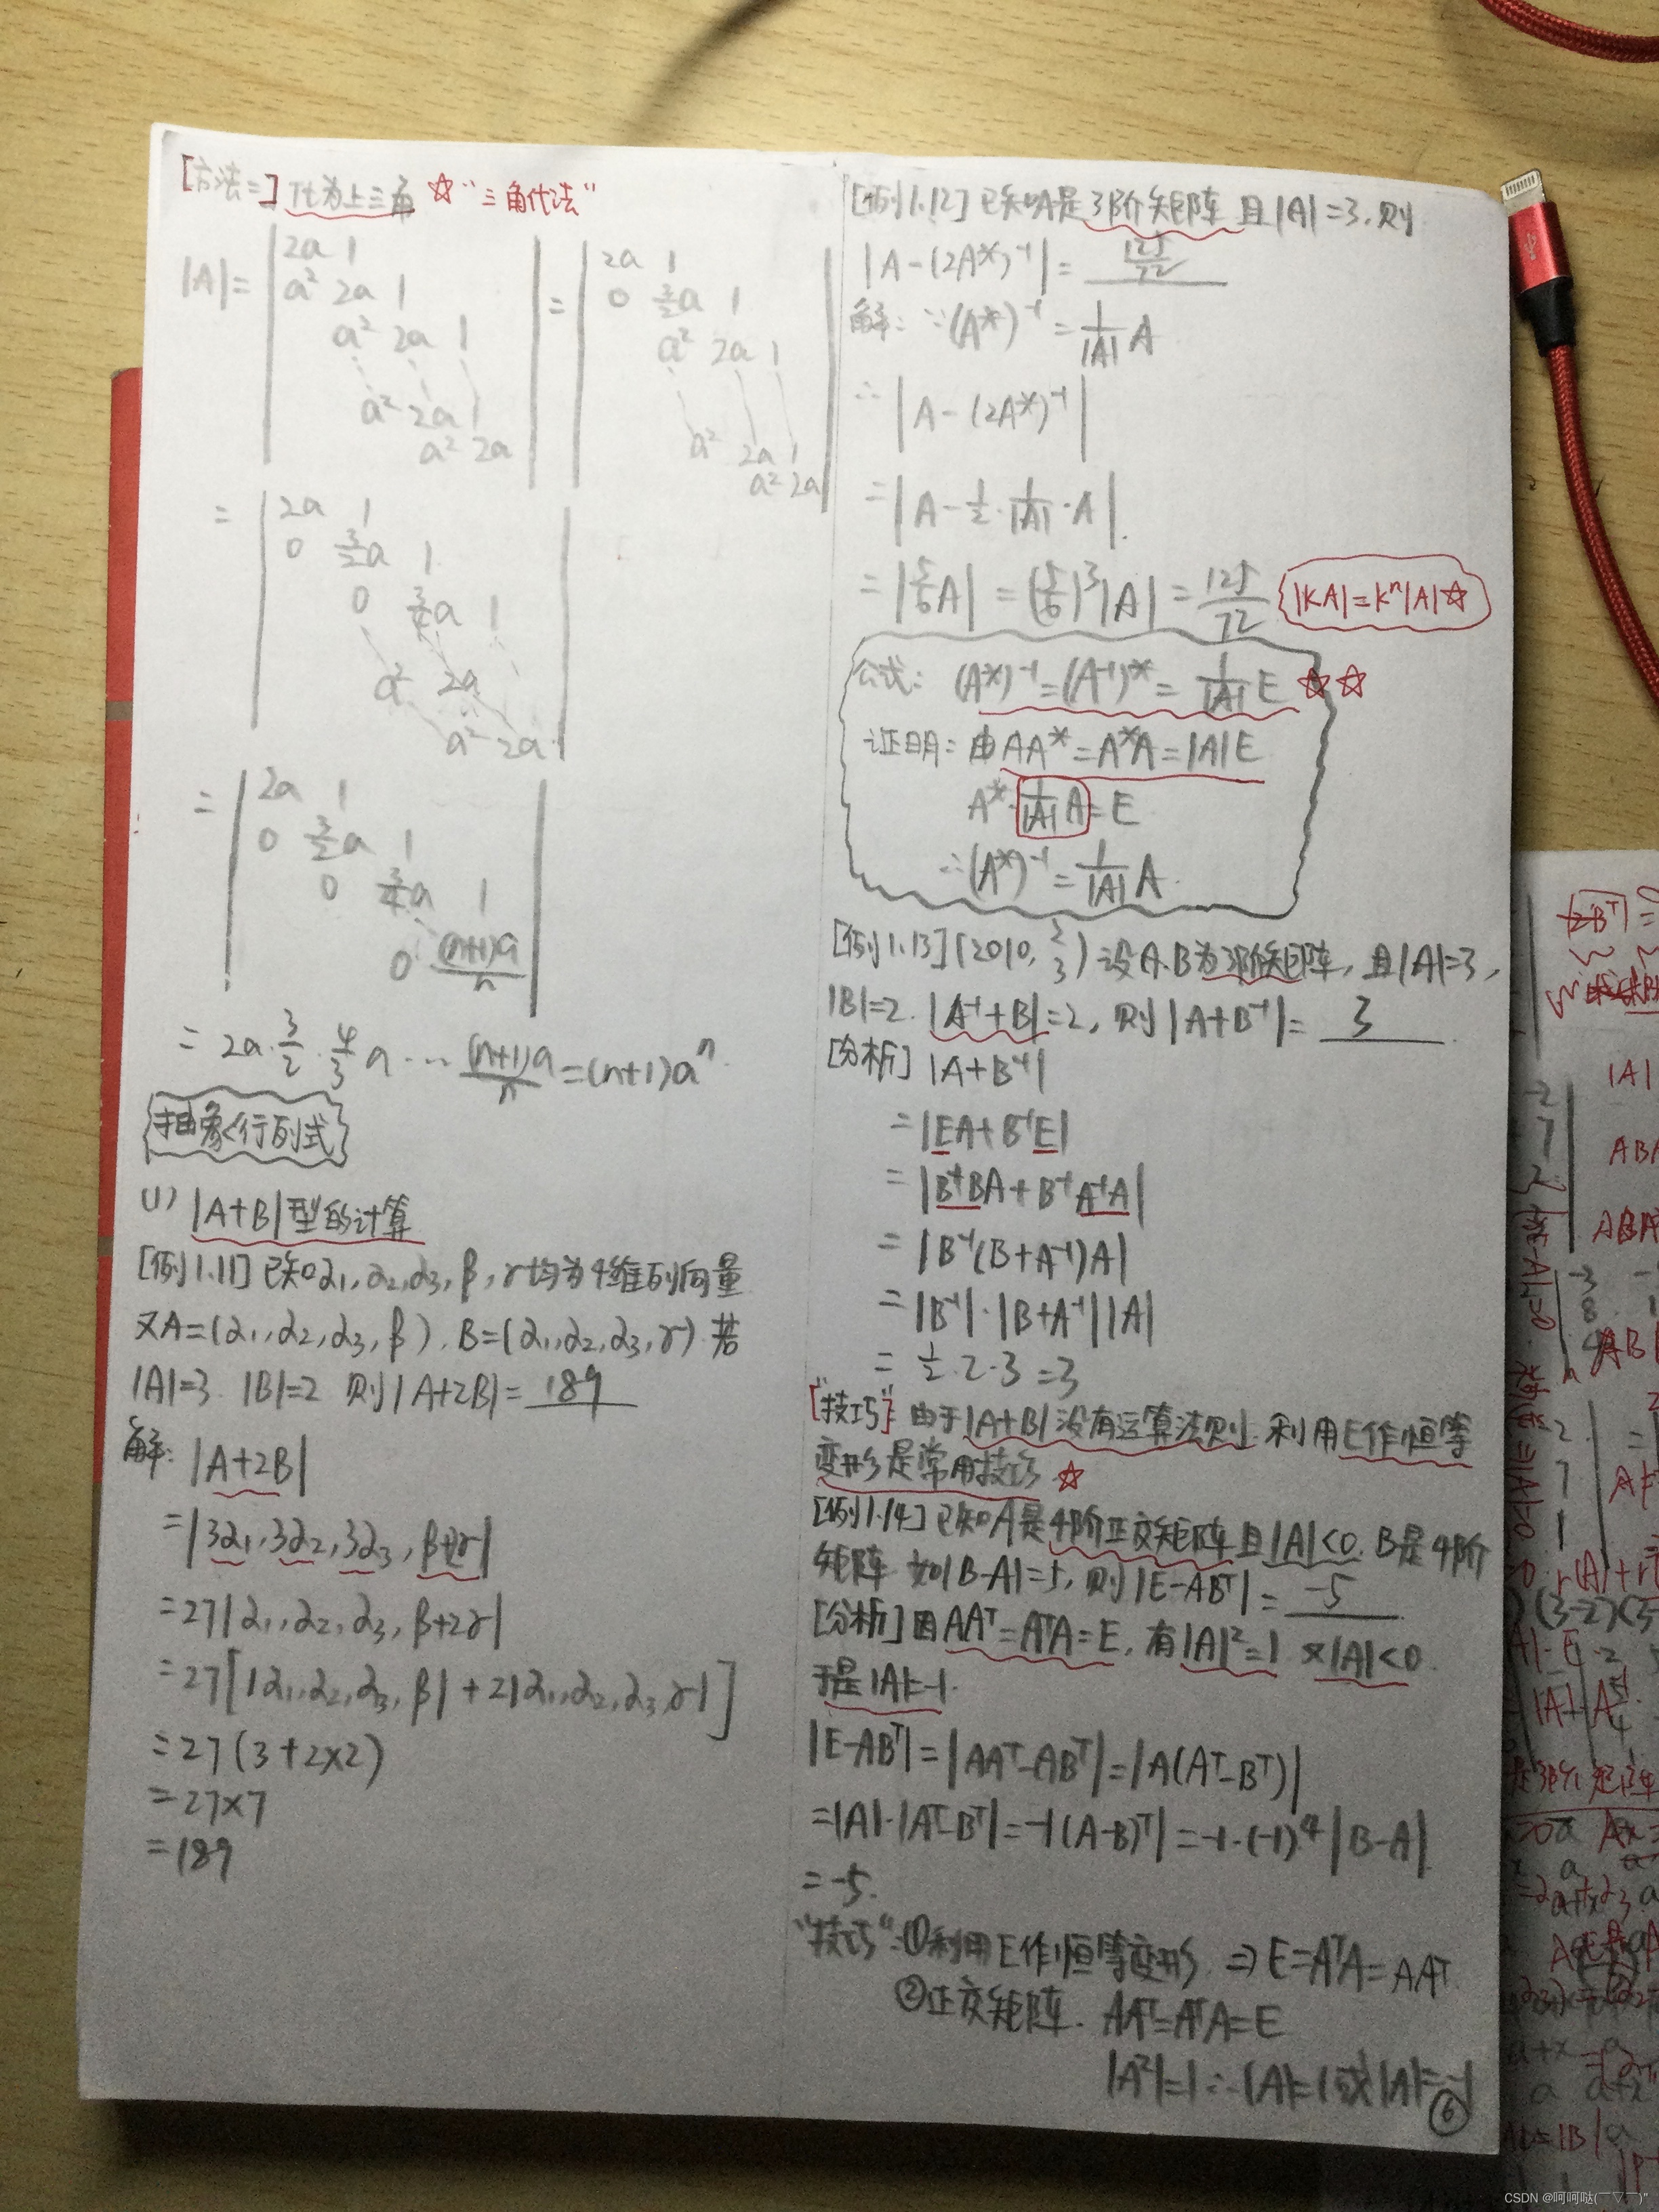 [方法二] 化为上三角 ☆ "三角化法"
|A| = | 2a 1
a² 2a 1
a² 2a 1
a² 2a 1
a² 2a |
= | 2a 1
0 3/2a 1
a² 2a 1
a² 2a 1
a² 2a |
= | 2a 1
0 3/2a 1
0 a 1
a² 2a
a² 2a |
= | 2a 1
0 3/2a 1
0 a 1
0 (n+1)a/n |
= 2a·3/2·4/3a…(n+1)a/n=(n+1)aⁿ
抽象行列式
(1) |A+B|型的计算
[例1.11] 已知α₁,α₂,α₃,β,γ均为4维列向量
又A=(α₁,α₂,α₃,β), B=(α₁,α₂,α₃,γ) 若
|A|=3 |B|=2 则|A+2B|= 189
解: |A+2B|
=|3α₁,3α₂,3α₃,β+2γ|
=27|α₁,α₂,α₃,β+2γ|
=27[|α₁,α₂,α₃,β|+2|α₁,α₂,α₃,γ|]
=27(3+2×2)
=27×7
=189
[例1.12] 已知A是3阶矩阵且|A|=3,则
|A-(2A*)⁻¹|= 125/72
解: ∵(A*)⁻¹=1/|A| A
∴ |A-(2A*)⁻¹|
=|A-1/2·1/|A|·A|
=|5/6A|=(5/6)³|A|=125/72 |KA|=Kⁿ|A|☆
公式: (A*)⁻¹=(A⁻¹)*=1/|A| E ☆☆
证明: 由AA*=A*A=|A|E
A*·1/|A| A=E
∴(A*)⁻¹=1/|A| A
[例1.13] (2010, 2/3) 设A.B为3阶矩阵, 且|A|=3,
|B|=2. |A⁻¹+B|=2, 则|A+B⁻¹|= 3
[分析] |A+B⁻¹|
=|EA+B⁻¹E|
=|B⁻¹BA+B⁻¹A⁻¹A|
=|B⁻¹(B+A⁻¹)A|
=|B⁻¹|·|B+A⁻¹||A|
=1/2·2·3=3
["技巧"] 由于|A+B|没有运算法则. 利用E作恒等
变形是常用技巧 ☆
[例1.14] 已知A是4阶正交矩阵且|A|<0. B是4阶
矩阵 如|B-A|=5, 则|E-ABᵀ|= -5
[分析] 因AAᵀ=AᵀA=E, 有|A|²=1 又|A|<0
于是|A|=-1.
|E-ABᵀ|=|AAᵀ-ABᵀ|=|A(Aᵀ-Bᵀ)|
=|A|·|Aᵀ-Bᵀ|=-|(A-B)ᵀ|=-1·(-1)⁴|B-A|
=-5.
"技巧": ①利用E作恒等变形 ⇒ E=AᵀA=AAᵀ
②正交矩阵. AAᵀ=AᵀA=E
|A²|=1 ∴|A|=1或|A|=-1
⑥
CSDN @呵呵哒(￣▽￣)"